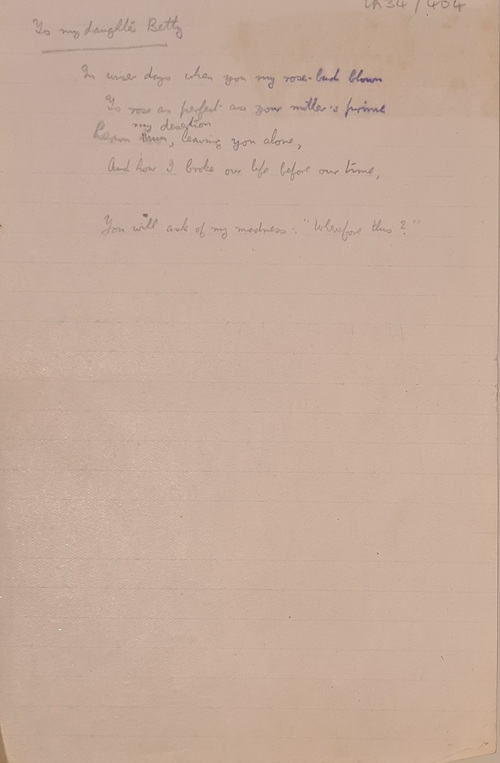 LR34/404
To my daughter Betty
In wiser days when you my rose-bud blown
To rose as perfect as your mother's prime
my desertion
Learn, leaving you alone,
And how I broke our life before our time,
You will ask of my madness: "Wherefore this?"